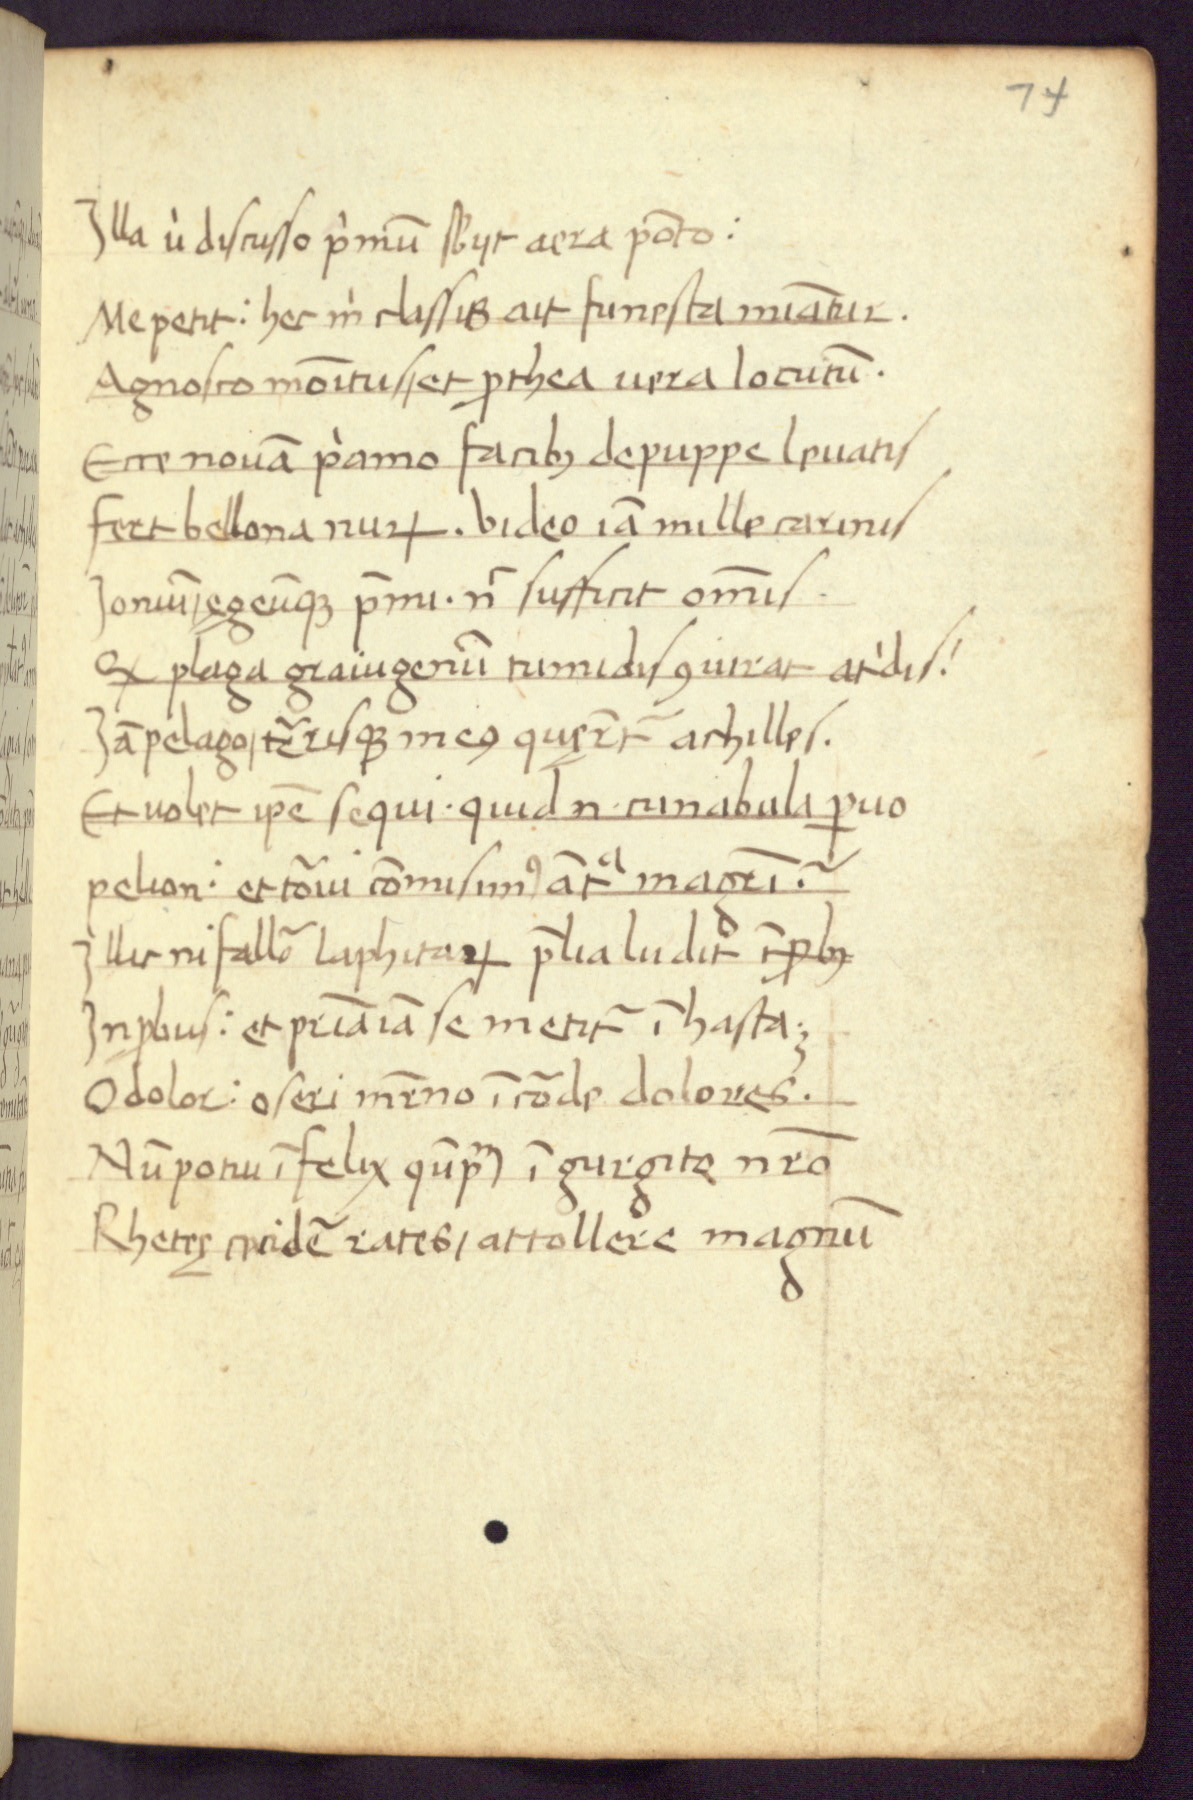 74
Illa ù discusso p̀mū sbijt aera pōto :
Me petit : hec m̀ classis ait funesta mināt̄ur .
Agnosco mōitus / et prothea uera locutū .
Ecce nouā p̀amo facibꝫ de puppe leuatis
fert bellona nurꝫ . Video iā mille carinis
Ioniū / egeūqꝫ p̄mi . n̄ sufficit om̄is .
Qꝫ plaga graiugenū tumidis ꝯiurat atˋdis !
Iā pelago / t̄risqꝫ meꝯ quęret̄ achilles .
Et uolet ip̄e sequi . quid n . cunabula ꝑuo
pelion : et tōrui cōmisimꝯ ātᵃ magrī . ~
Illic ni fallor̄ laphitarꝝ p̄lia ludit
Inꝓbus : et pr̄iā iā se metit̄ ī hasta ;
O dolor : o seri mr̄no ī cōrde dolores .
Nū potui īfelix qūpꝰ ī gurgite nr̄o
Rhetęę ceciderē̄ rates / attollere magnū